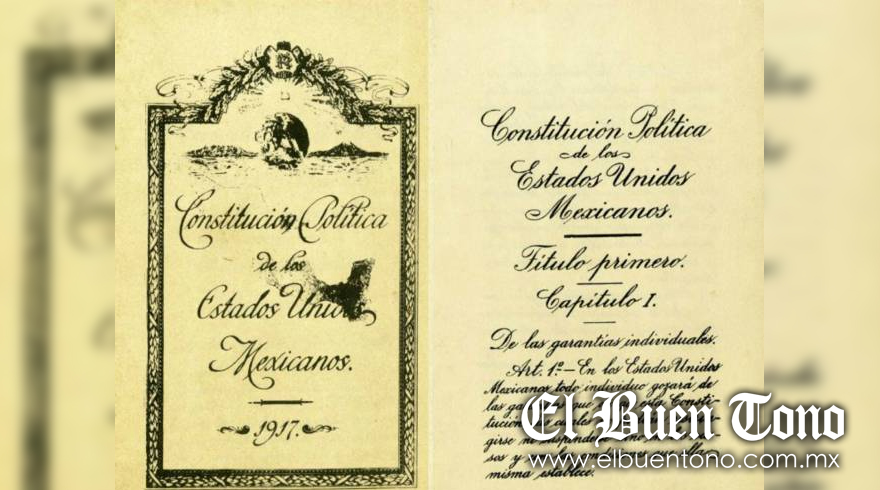 Constitución Política
de los
Estados Unidos
Mexicanos.
1917.
Constitución Política
de los
Estados Unidos
Mexicanos.
Título primero.
Capítulo I.
De las garantías individuales.
Art. 1º.— En los Estados Unidos
Mexicanos todo individuo gozará de
las que esta Consti-
tución
girse ni
sos y
misma establece.
El Buen Tono
www.elbuentono.com.mx